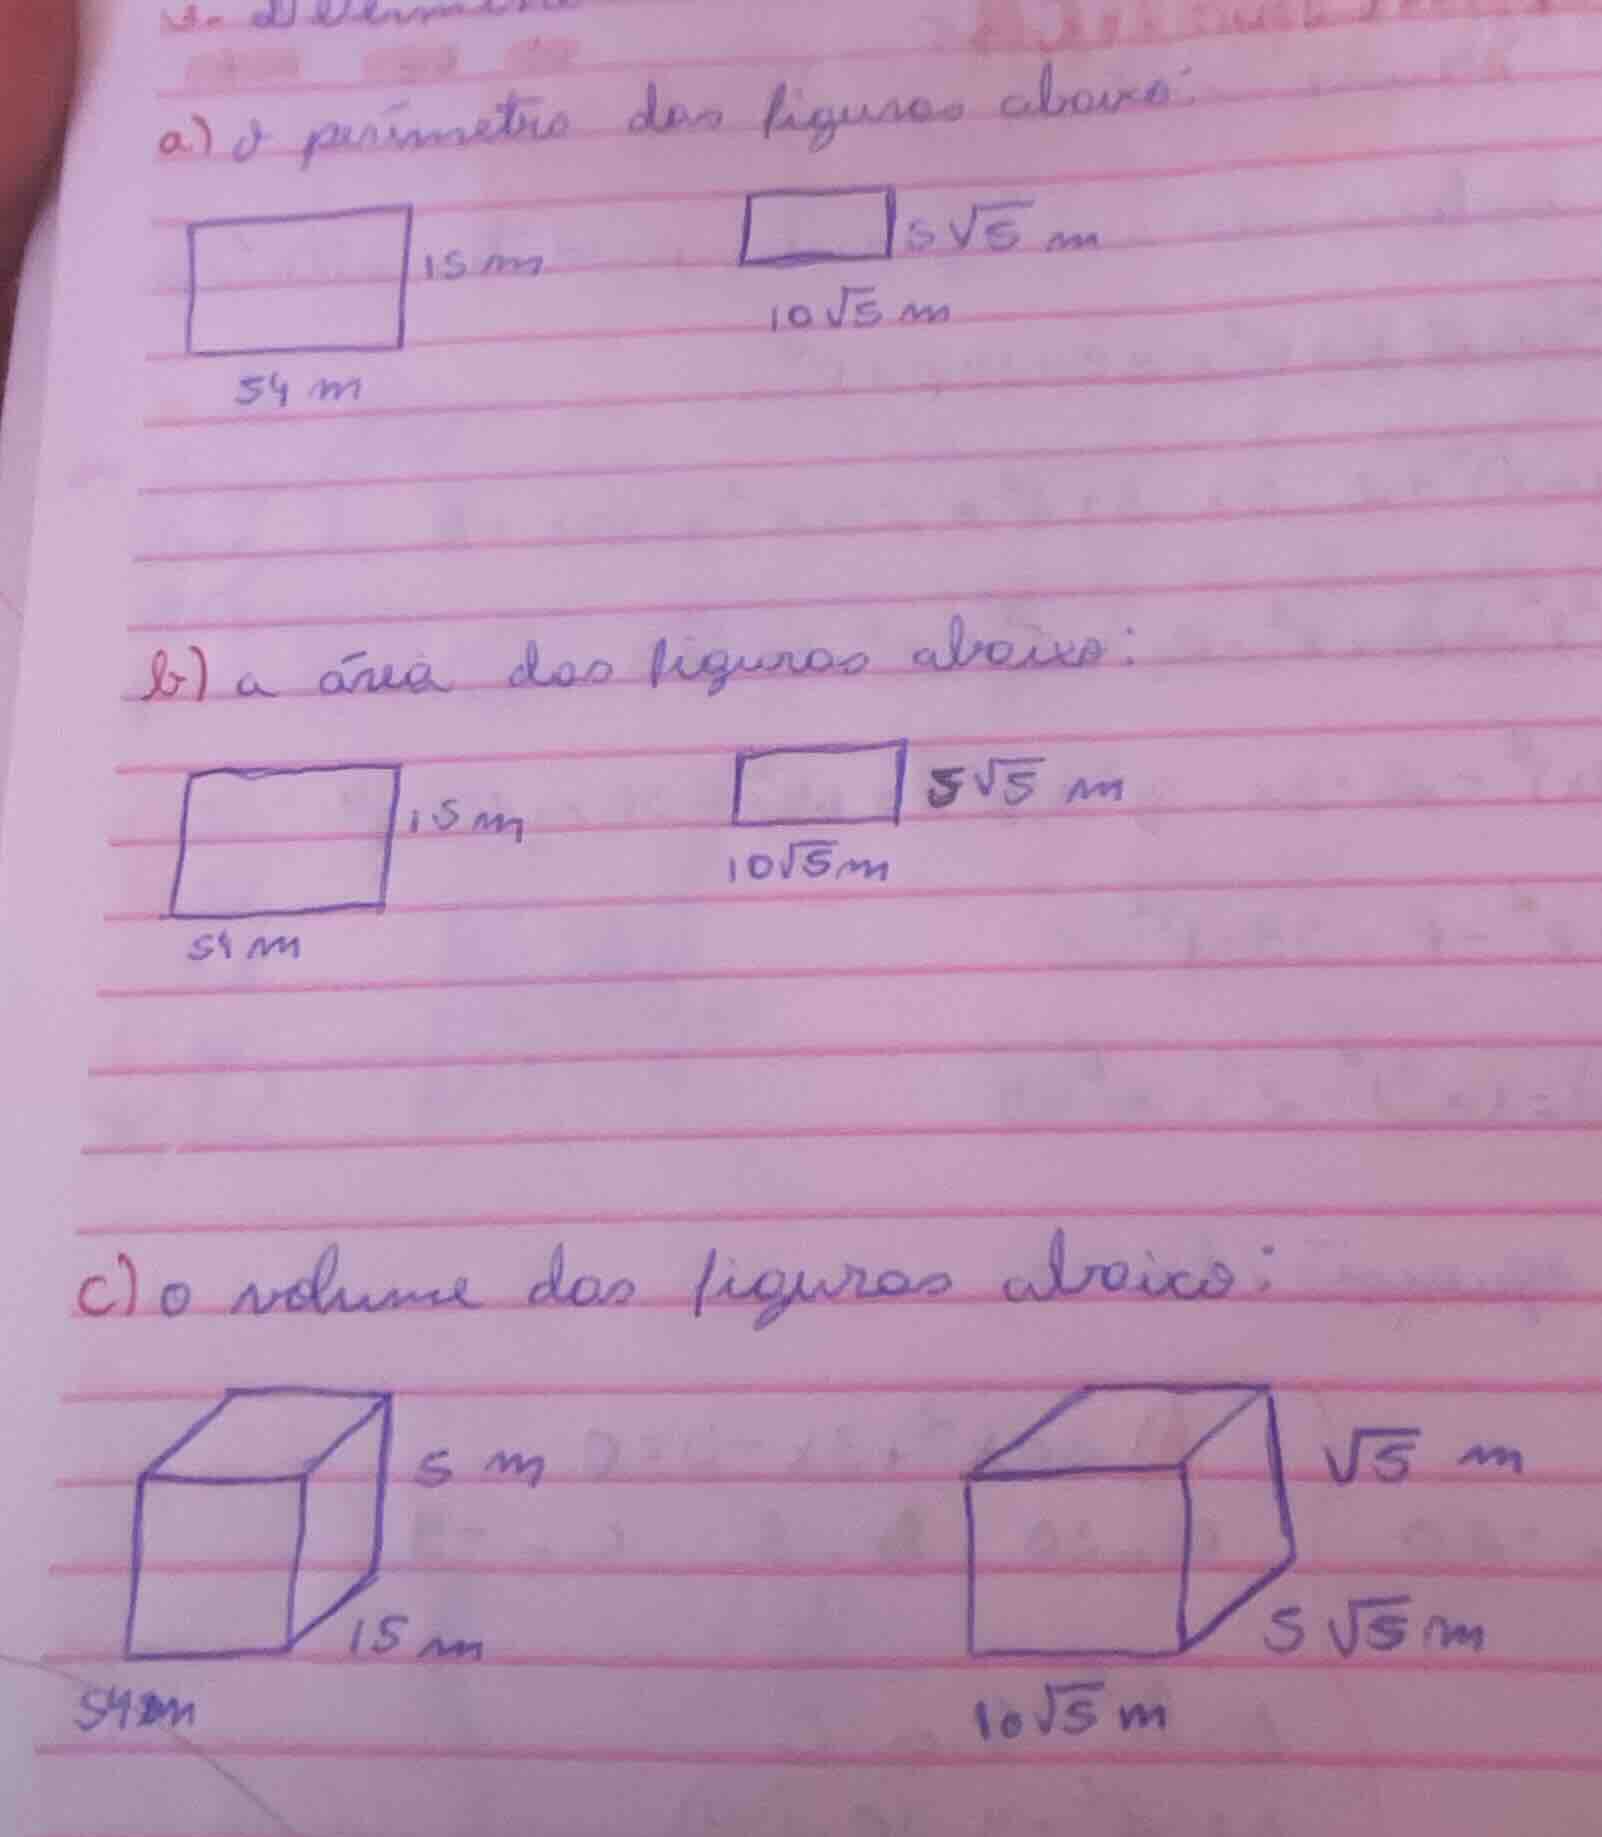 a) o perímetro das figuras abaixo:
15 m
5√5 m
10√5 m
54 m
b) a área das figuras abaixo:
15 m
5√5 m
10√5 m
54 m
c) o volume das figuras abaixo:
5 m
√5 m
15 m
5√5 m
54 m
10√5 m